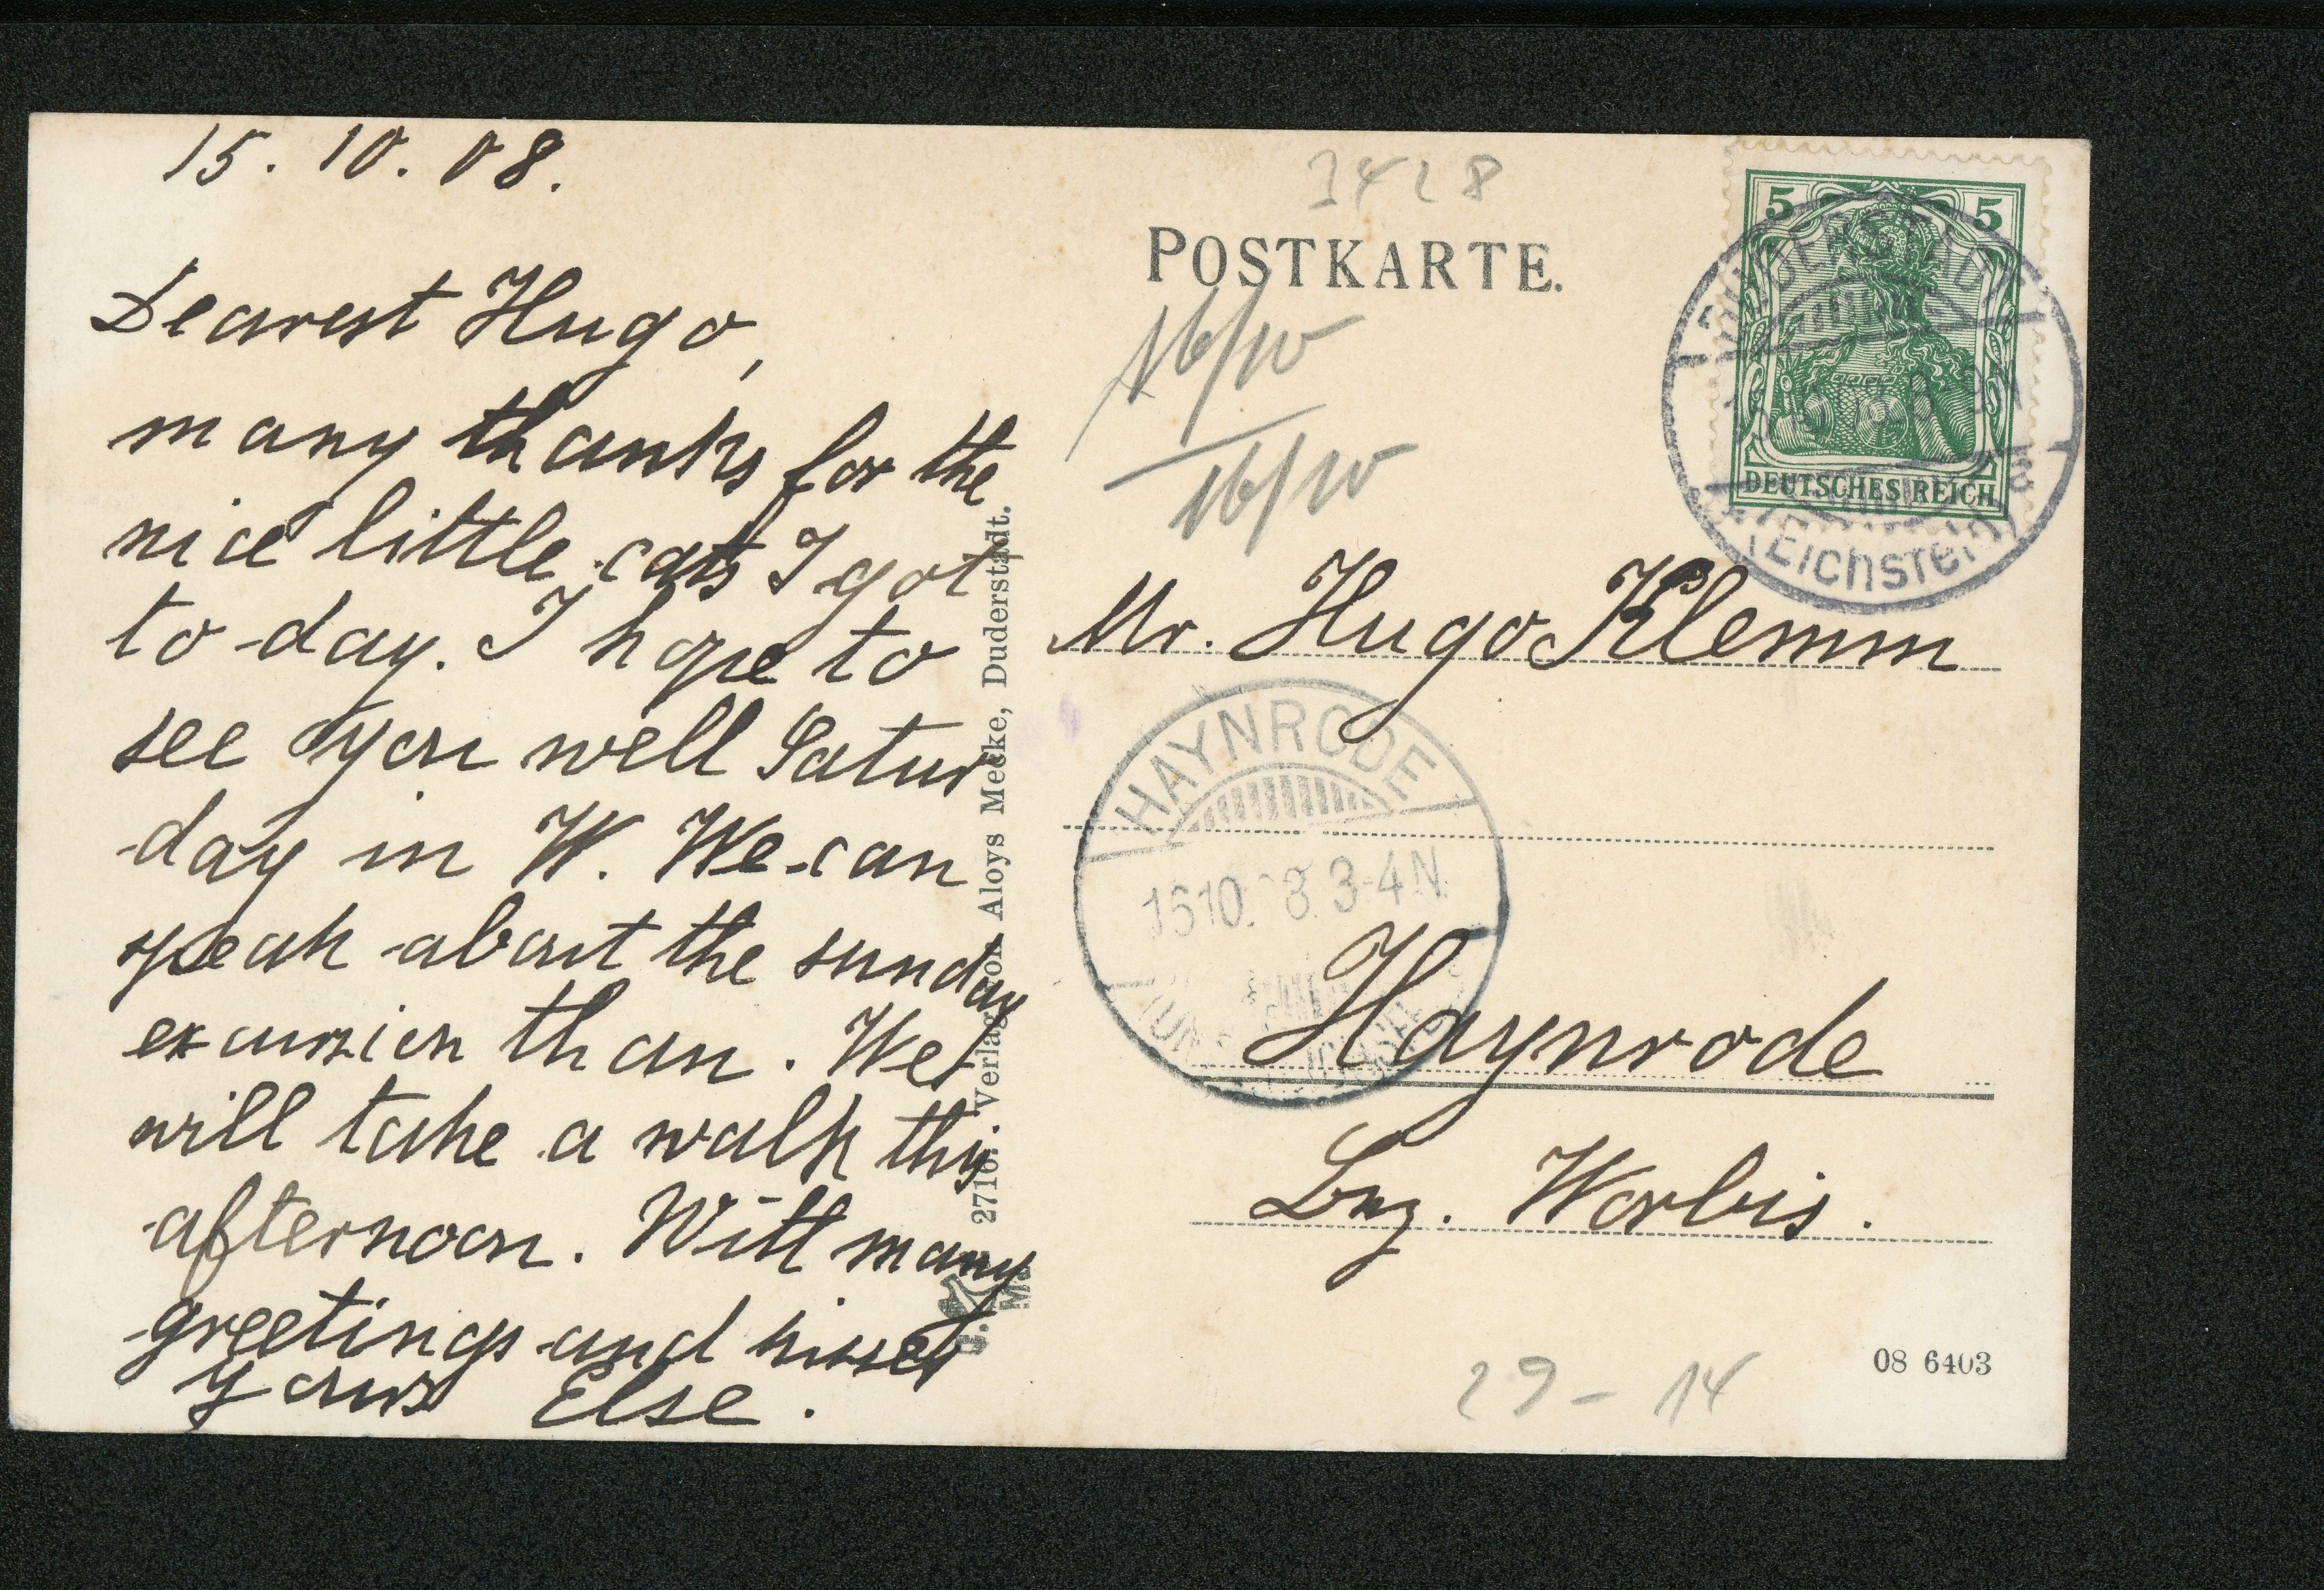 15. 10. 08.
Dearest Hugo,
many thanks for the
nice little cats I got
to-day. I hope to
see you well Satur
day in W. We can
speak about the sunday
excursion than. We
will take a walk this
afternoon. With many
greetings and kisses
yours Else.
2710. Verlag von Aloys Mecke, Duderstadt.
3428
POSTKARTE.
16/10
16/10
5 5
DEUTSCHES REICH
DUDERSTADT
(Eichsfeld)
Mr. Hugo Klemm
HAYNRODE
16 10. 8. 3-4 N.
Haynrode
Bez. Worbis.
08 6403
29 - 14